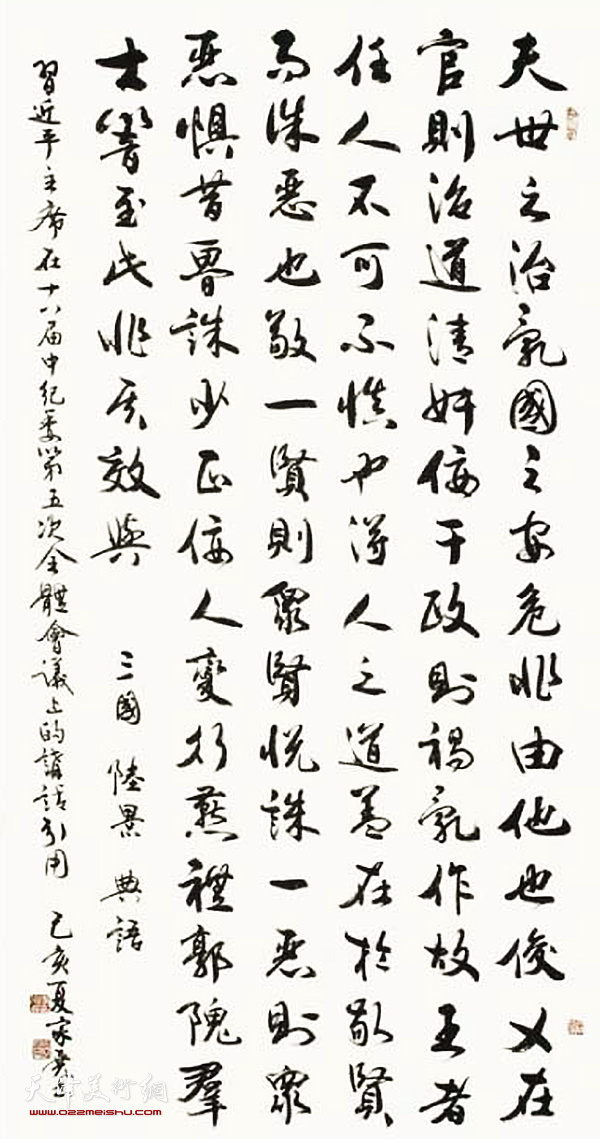 夫世之治亂國之安危非由他也俊乂在
官則治道清奸佞干政則禍亂作故王者
任人不可不慎也得人之道蓋在於敬賢
而誅惡也敬一賢則眾賢悅誅一惡則眾
惡懼昔魯誅少正佞人變行燕禮郭隗羣
士響至此非其效與
三國 陸景 典語
習近平主席在十八届中纪委第五次全體會議上的講話引用 己亥夏
天津美術網
www.022meishu.com